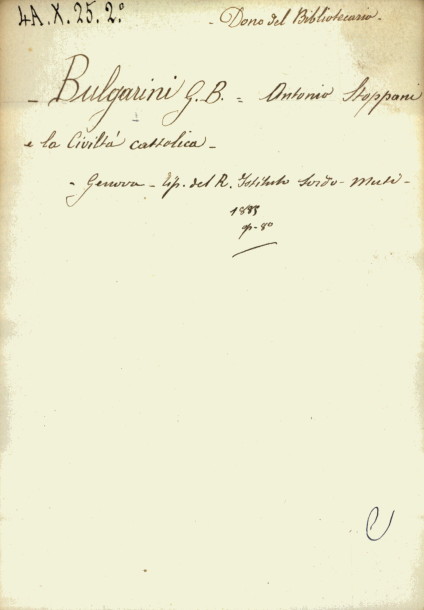 4A.X.25.2.°
- Dono del Bibliotecario.
- Bulgarini G. B. = Antonio Stoppani
e la Civiltà cattolica -
- Genova - Tip. del R. Istituto Sordo-Muti -
1885
in-8°